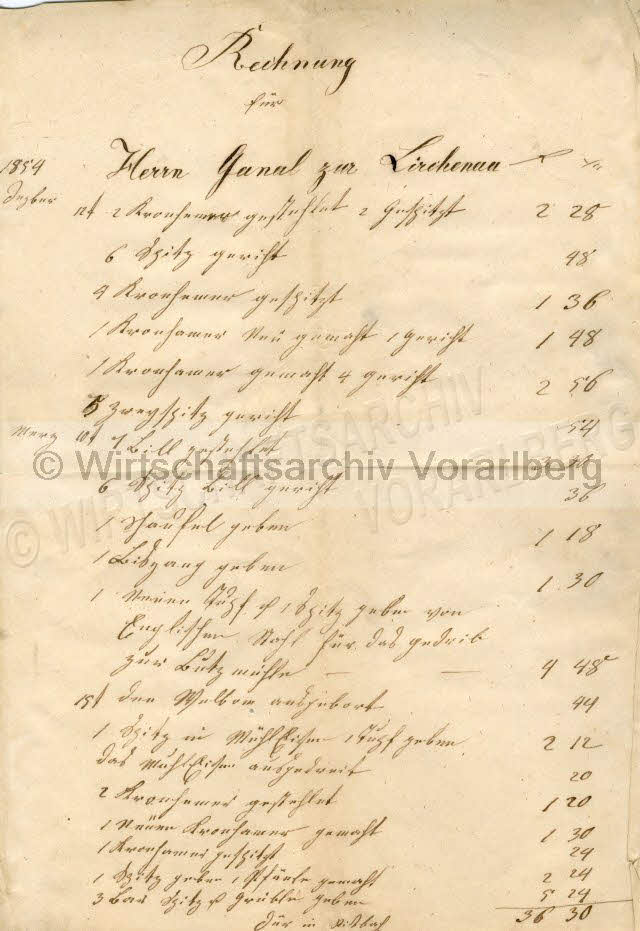 Rechnung
für
1854 Herrn Ganal zur Lirchenau f xr
Dezber
12t 2 Kronhemer gestehlet 2 Gespitzt 2 28
6 Spitz gericht 48
4 Kronhemer gespitzt 1 36
1 Kronhamer Neu gemaht 1 gericht 1 48
1 Kronhamer gemaht 4 gericht 2 56
3 Zweyspitz gericht 54
Merz 10t 7 Bill gestehlet
6 Spitz Bill gericht 36
1 Schaufel geben 1 18
1 geben 1 30
1 Neuen 1 Spitz geben von
Englischen Stahl für das gedrib
zur Butzmühle — — 4 48
15t den Welbom ausgebort 44
1 Spitz in Mühl Eisen geben 2 12
das Mühl Eisen ausgedreit 20
2 Kronhemer gestehlet 1 20
1 Neuen Kronhamer gemaht 1 30
1 Kronhamer gespitzt 24
1 Spitz geben 1 gemaht 2 24
3 Bar Spitz geben 5 24
36 30
© Wirtschaftsarchiv Vorarlberg
© WIRTSCHAFTSARCHIV VORARLBERG